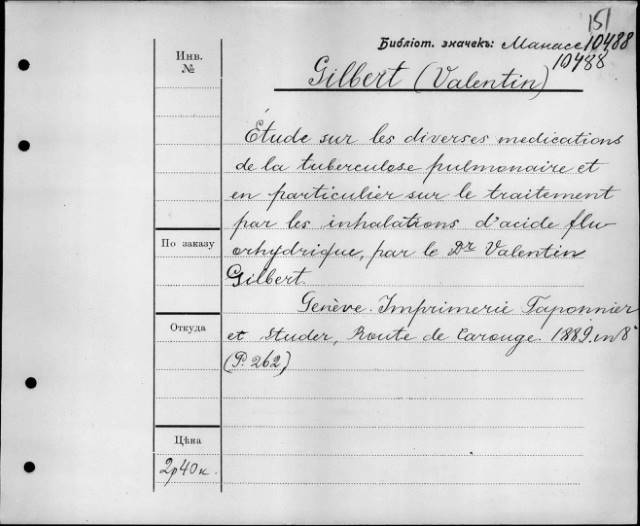 151
Библіот. значекъ: Манассе 10488
10488
Инв.
№
Gilbert (Valentin)
Étude sur les diverses medications
de la tuberculose pulmonaire et
en particulier sur le traitement
par les inhalations d'acide flu-
orhydrique, par le Dr Valentin
Gilbert.
Genève. Imprimerie Taponnier
et Studer, Route de Carouge. 1889. in 8°
(P. 262)
По заказу
Откуда
Цѣна
2р40к.